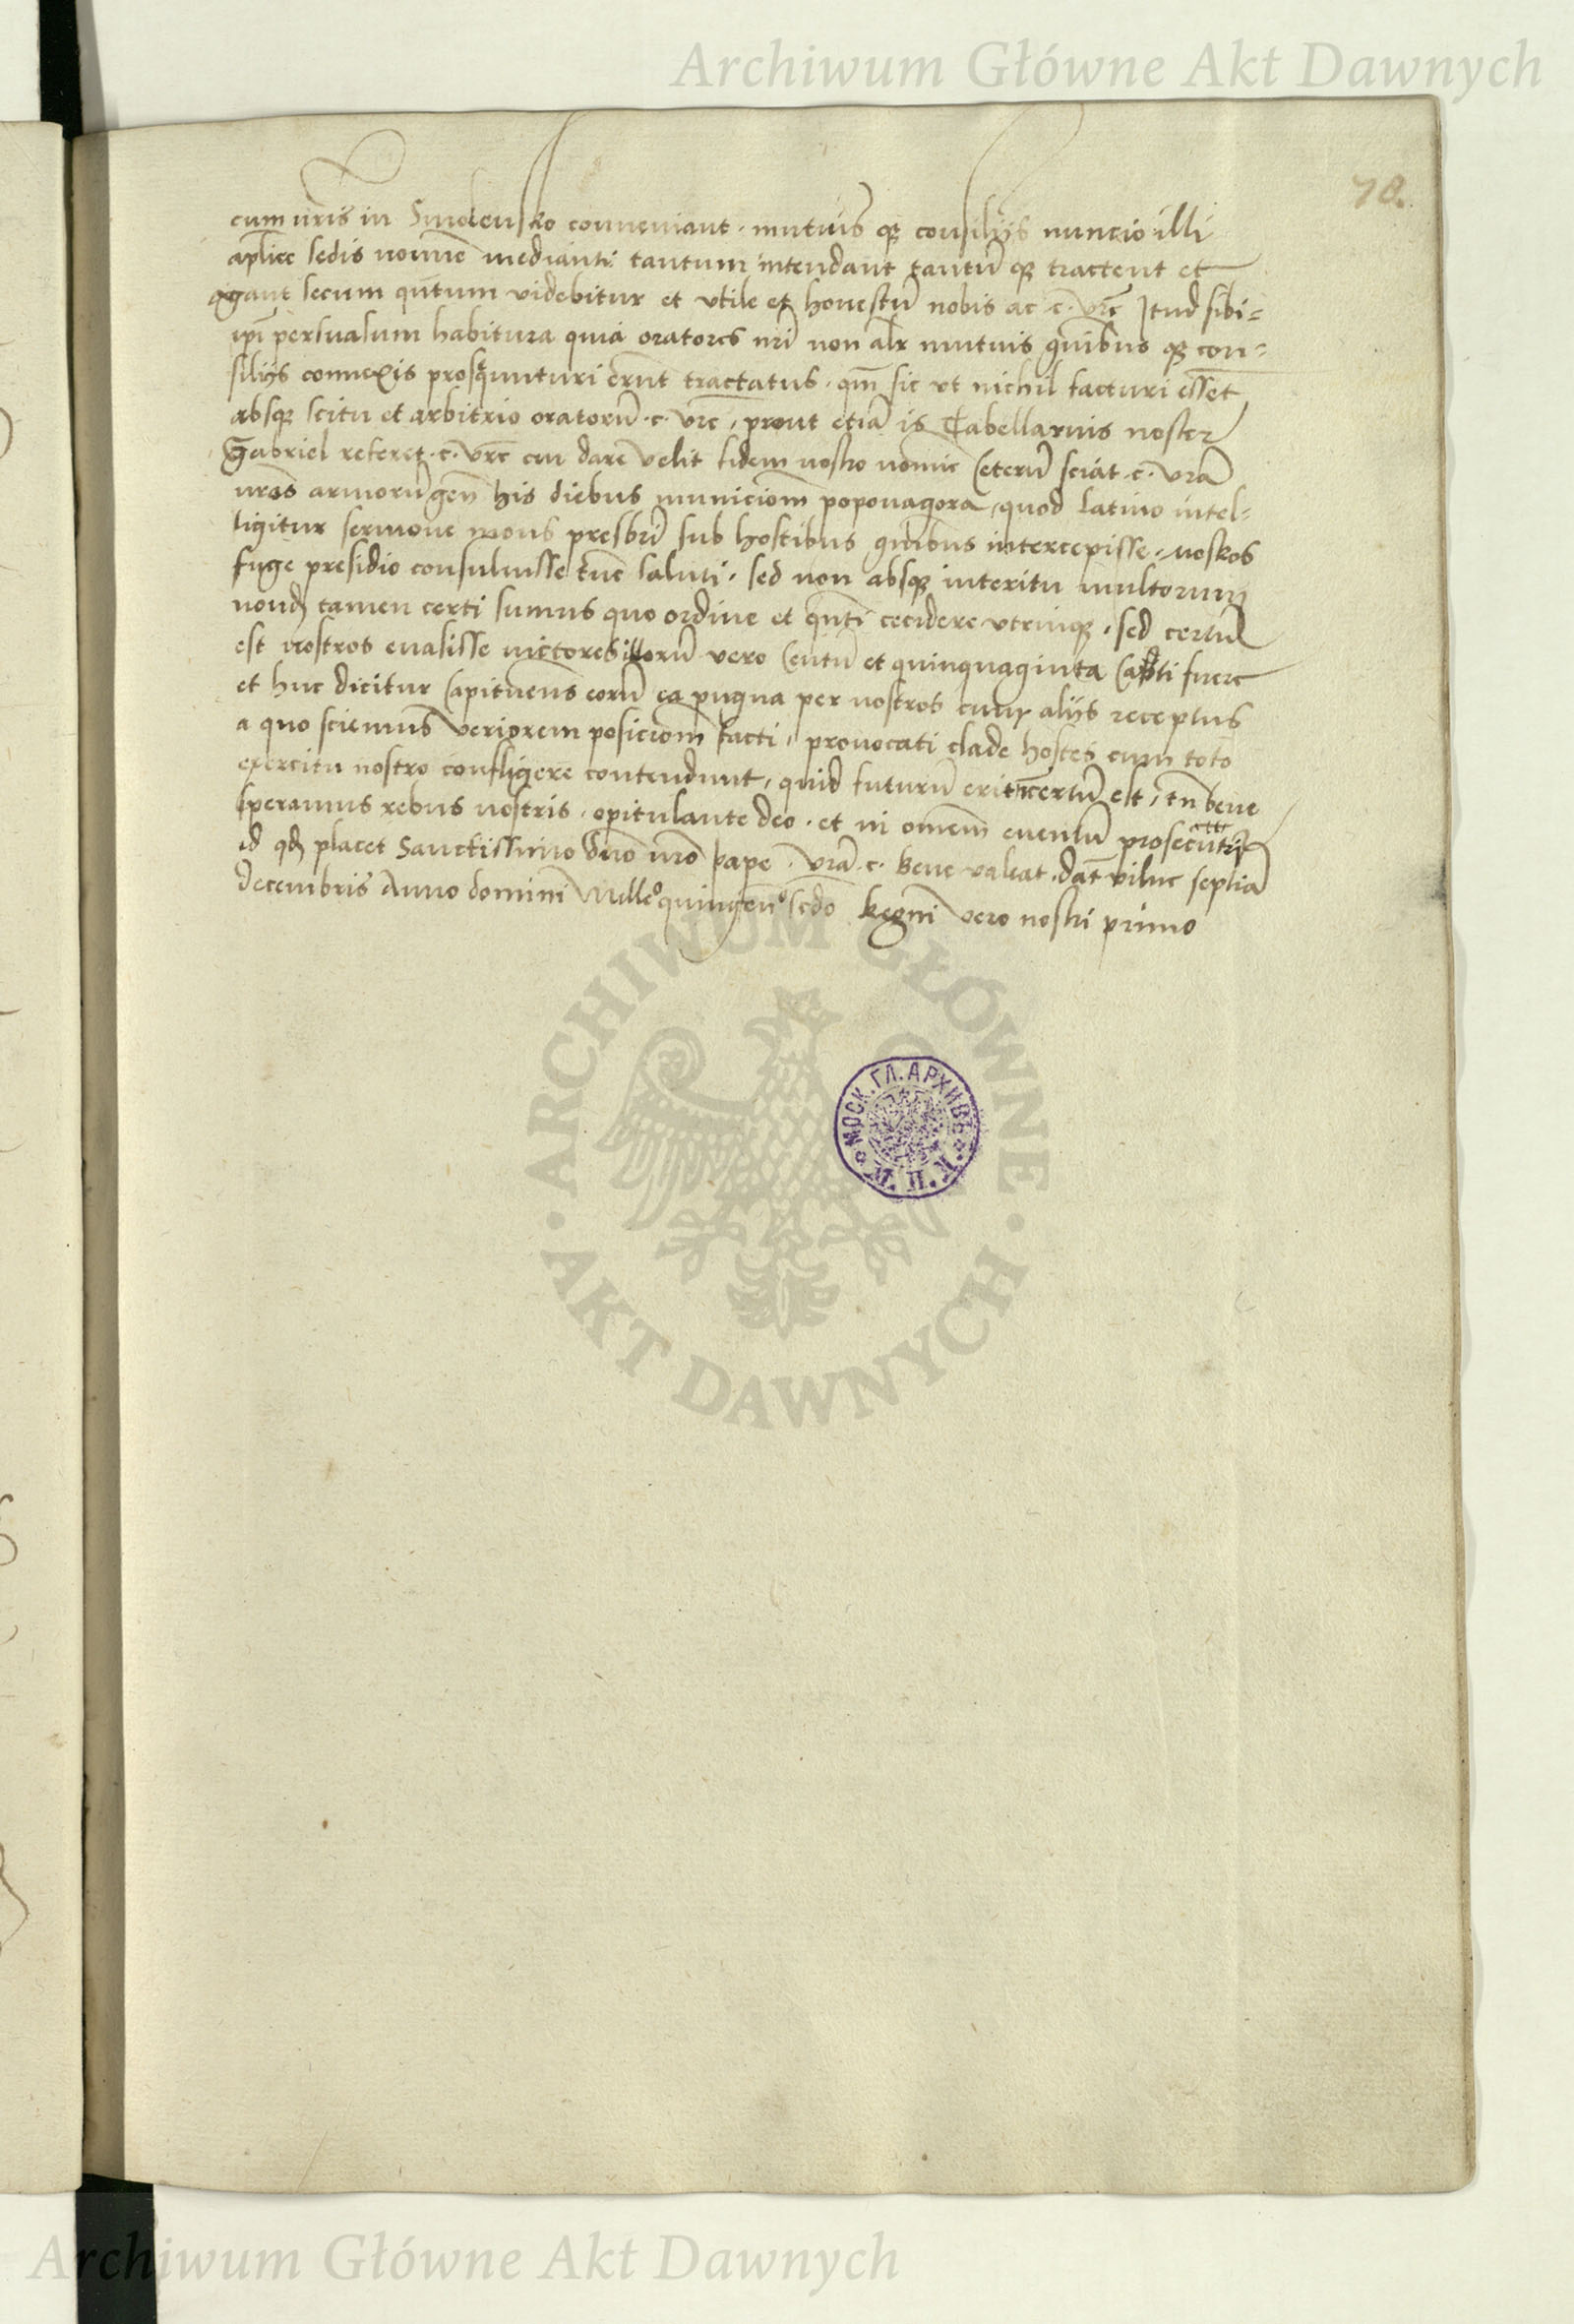 Archiwum Główne Akt Dawnych
70.
cum nr̄is in Smolensko conveniant · mutuis qȝ consilijs nuncio illi
aplice sedis nomīe medianti tantum intendant tantū qȝ tractent et
agant secum qn̄tum videbitur et vtile et honestū nobis ac · c · vrē Itud sibi=
ipī persuasum habitura quia oratores nrī non alr̄ mutuis qnibus qȝ con=
silijs connexis prosequuturi erūnt tractatus · qm̄ sic vt nichil facturi essēt
absqȝ scitu et arbitrio oratorū · c · vrē, prout etiā is Tabellarius noster
Gabriel referet · c · vrē cui dare velit fidem nostro nomīe Ceterū sciat · c · vrā
nrōs armorū gen̄ his diebus municiōm popovagora, quod latino intel=
ligitur sermone mons presbrī sub hostibus intercepisse · noskos
fuge presidio consuluisse tūc saluti · sed non absqȝ interitu multorum
nondȝ tamen certi sumus quo ordine et qn̄ti cecidere vtrinqȝ · sed certū
est nostros euasisse victores illorū vero Centū et quinquaginta Capti fuere
et huc dicitur Capitaneus eorū ea pugna per nostros cum alijs receptus
a quo sciemus veriorem posiciōm facti, prouocati clade hostes cum toto
exercitu nostro confligere contendunt, quid futurū erit incertū est, tn̄ bene
speramus rebus nostris · opitulante deo · et in omēm euentū prosecuturi
id qđ placet Sanctissimo dn̄o nrō pape · vrā · c · bene valeat · dat̄ vilne septīa
decembris Anno domini Milleº quingenº scdo Regni vero nostri primo
ARCHIWUM GŁÓWNE
· AKT DAWNYCH ·
МОСК. ГЛ. АРХИВЪ
М. И. Д.
Archiwum Główne Akt Dawnych